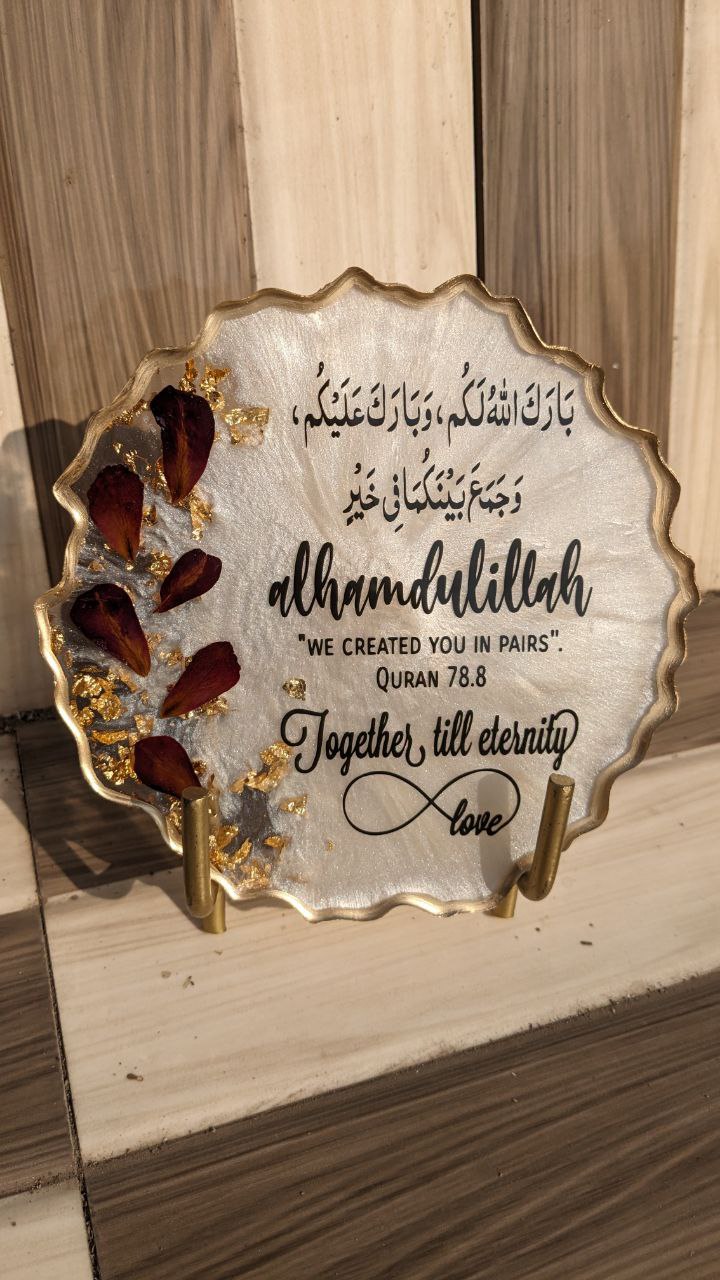 بَارَكَ اللهُ لَكُم، وَبَارَكَ عَلَيْكُم،
وَجَمَعَ بَيْنَكُمَا فِي خَيْرٍ
alhamdulillah
"WE CREATED YOU IN PAIRS".
QURAN 78.8
Together till eternity
love